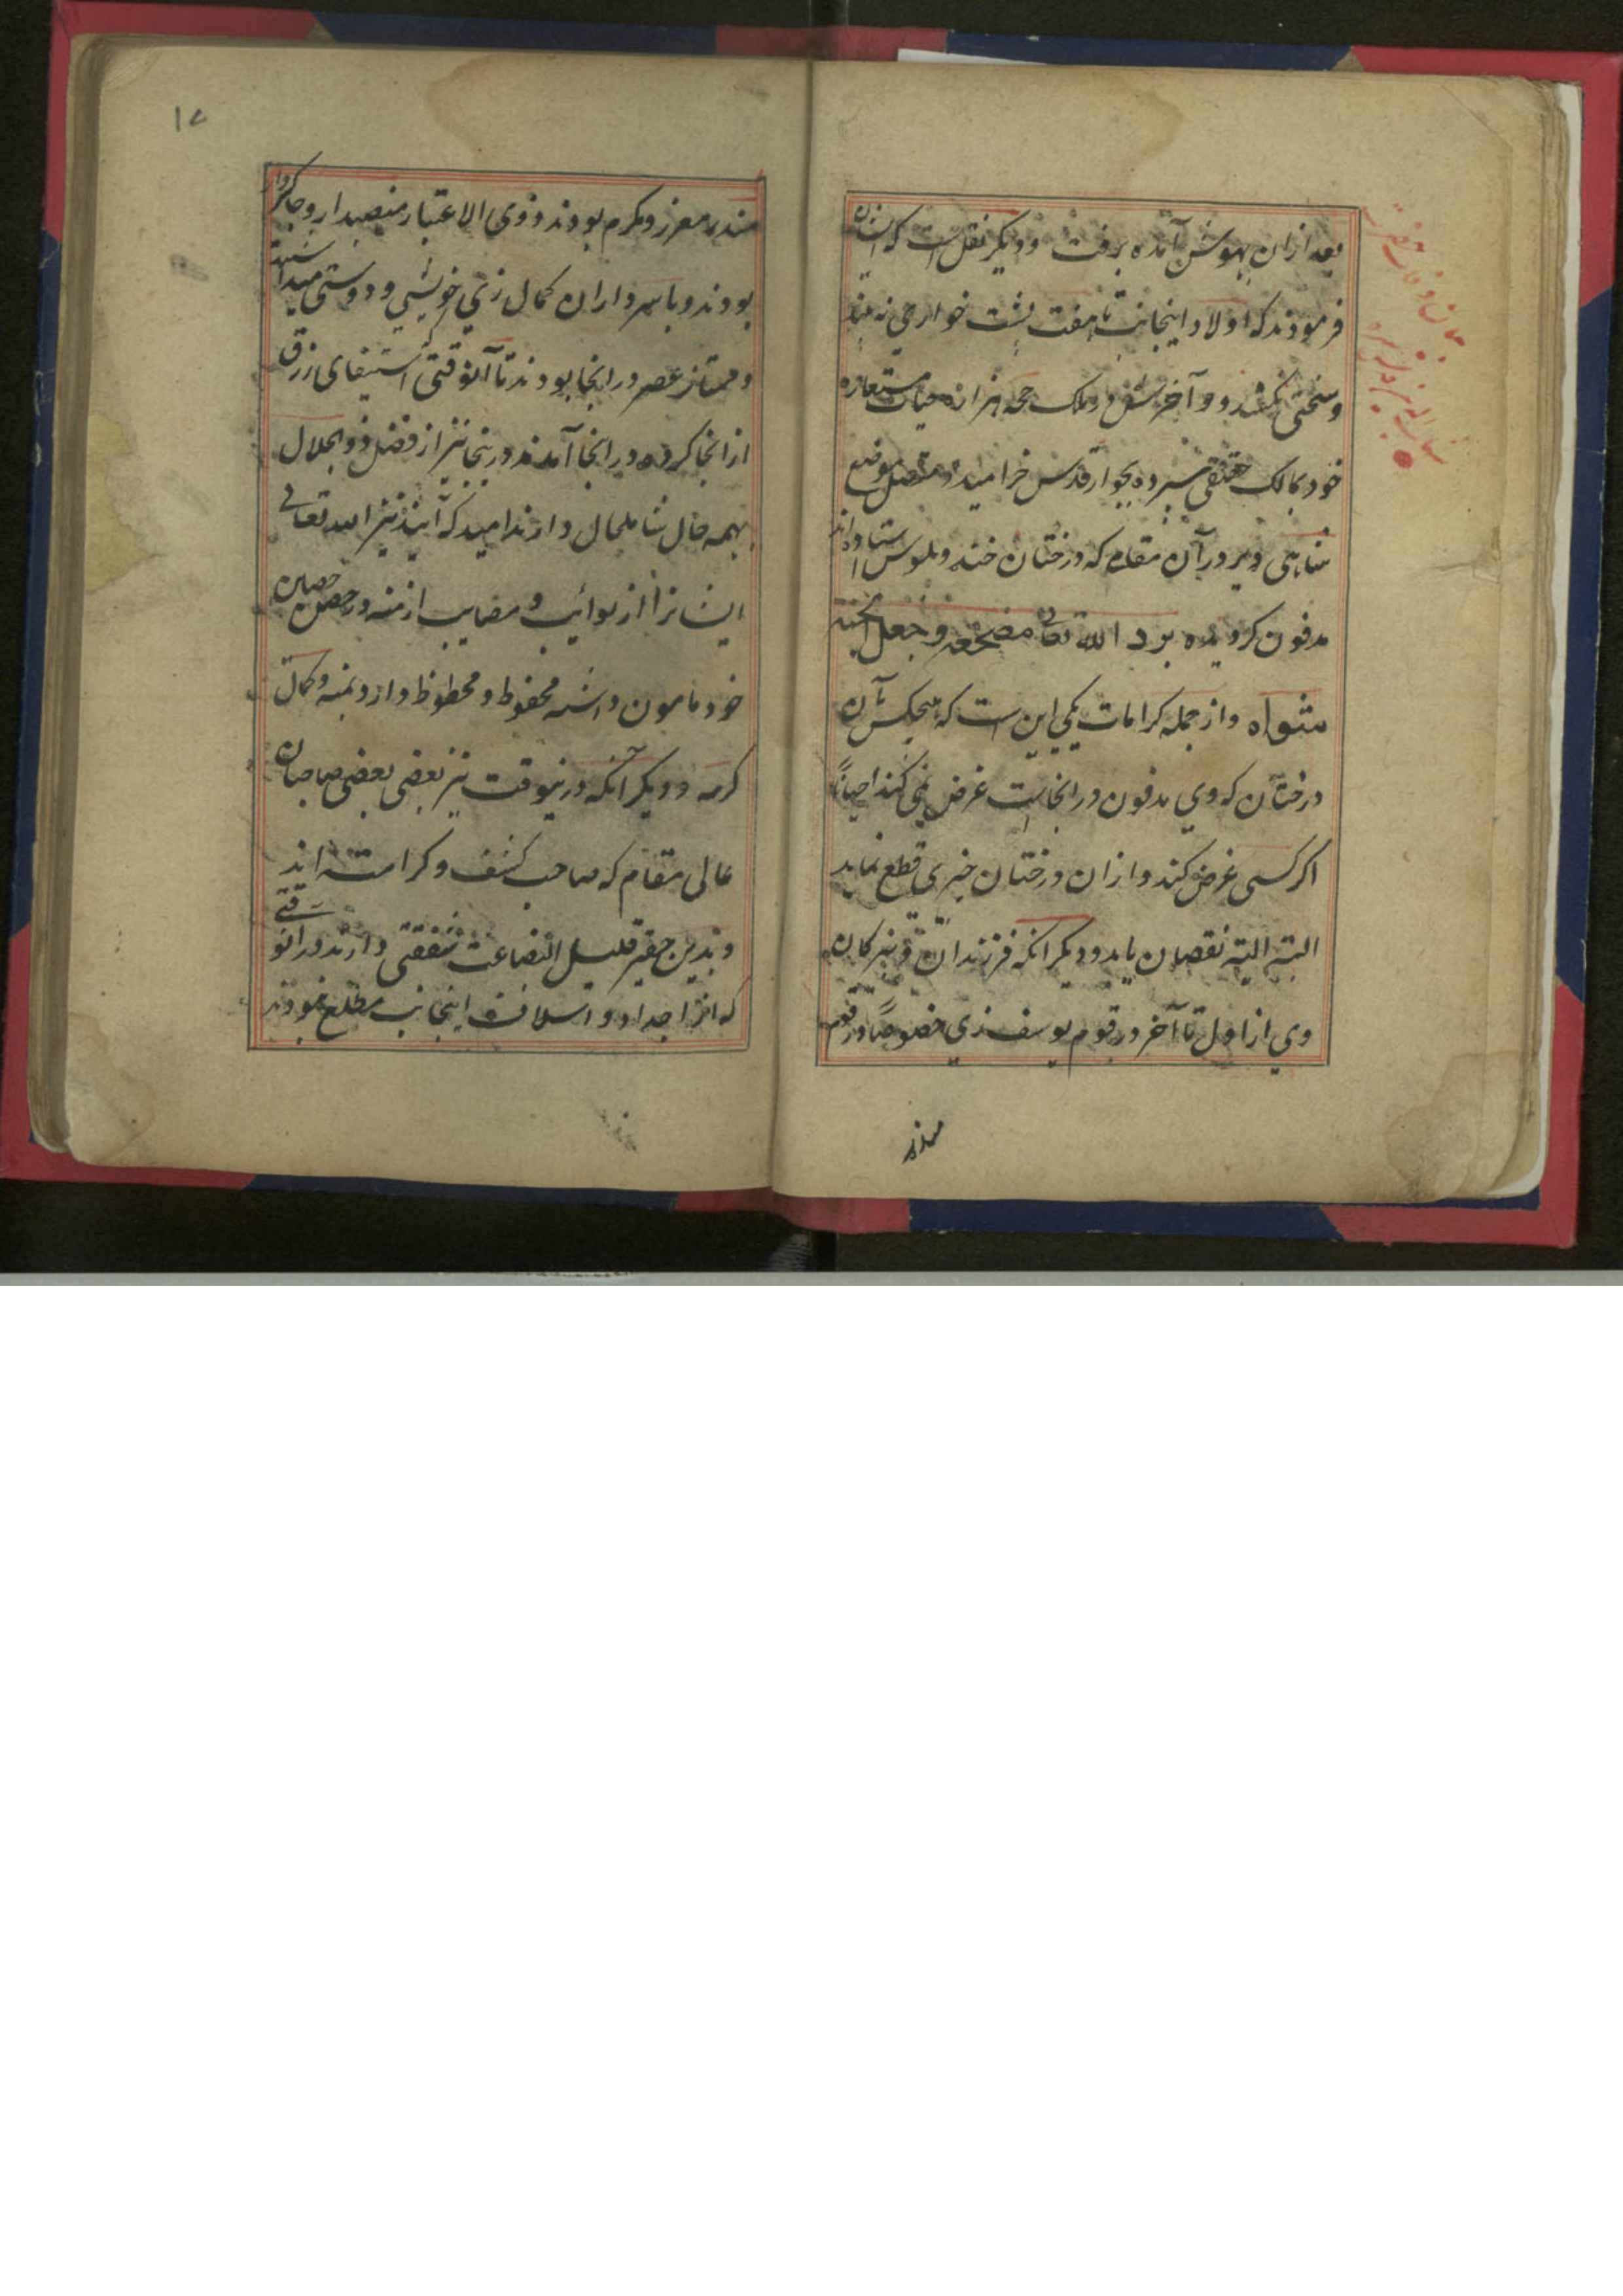 بعد ازان بهوش آمده برفت و دیگر نقل است که ایشان
فرمودند که اولاد اینجانب تا هفت پشت خوار حی نه بیند
و سختی نکشد و آخرش در ملک هزاره حیات مستعاره
خود بمالک حقیقی سپرده بجوار قدس خرامید و متصل موضع
شاهی دیر در آن مقام که درختان خنه و بلوس استاده اند
مدفون کردیده برد الله تعالی مضجعه و جعل الجنة
مثواه و از جمله کرامات یکی این است که هیچکس بآن
درختان که وی مدفون در انجاست غرض نمی کند احیاناً
اکر کسی غرض کند و ازان درختان چیزی قطع نماید
البته البته نقصان یابد و دیکر آنکه فرزندان و نبیرکان
وی از اول تا آخر در قوم یوسف زی خصوصاً در قوم
مندر
۱۷
مندر معزز و مکرم بودند و ذوی الاعتبار منصبدار و جاکیردار
بودند و با سرداران کمال زی خویشی و دوستی میداشتند
و ممتاز عصر در انجا بودند تا آنوقتی استیفای رزق
از انجا کرده در اینجا آمدند درینجا نیز از فضل ذوالجلال
بهمه حال شاملحال دارند امید که آینده نیز الله تعالی
ایشانرا از نوائب و مصایب ازمنه در حصن حصین
خود مامون داشته محفوظ و محظوظ دارد بمنه و کمال
کرمه و دیکر آنکه درینوقت نیز بعضی بعضی صاحبان
عالی مقام که صاحب کشف و کرامته اند
و بدین حقیر قلیل البضاعت شفقتی دارند در آنوقتی
که از اجداد و اسلاف اینجانب مطلع نبودند